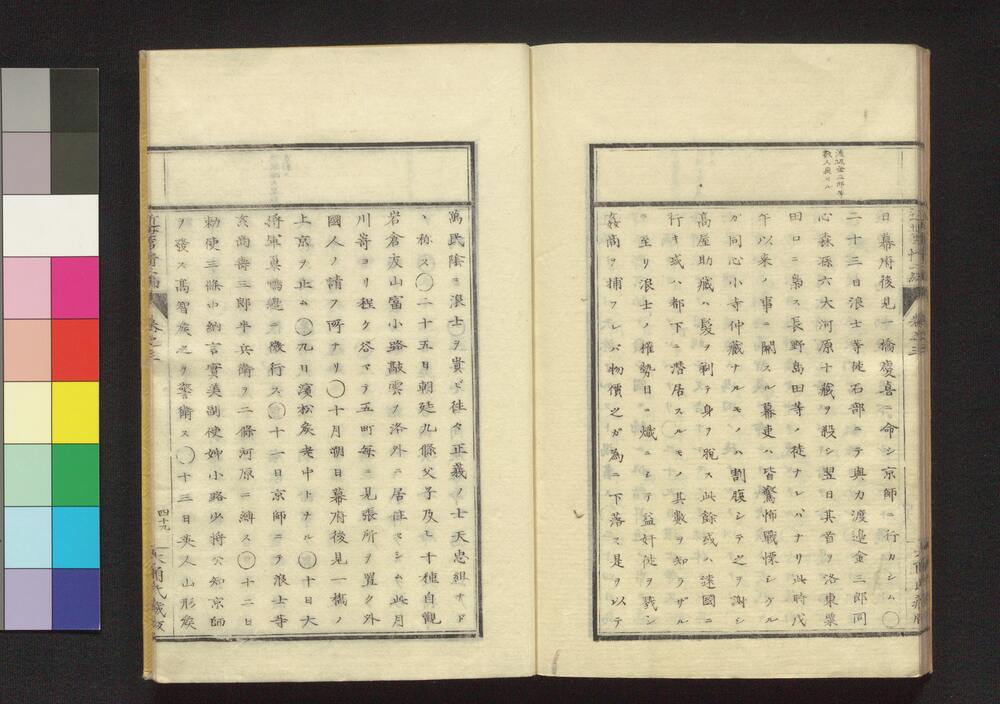 渡邊金三郎等
数人
日幕府後見一橋慶喜ニ命シ京師ニ行カシム〇
二十三日浪士等徒石部ニテ與力渡邉金三郎同
心森孫六大河原十蔵ヲ殺シ翌日其首ヲ洛東粟
田口ニ梟ス長野島田等ノ徒ナレバナリ此時戊
午以来ノ事ニ関スル幕吏ハ皆驚怖戰慄シケル
ガ同心小寺仲蔵ナルモノハ割腹シテ之ヲ謝シ
髙屋助蔵ハ髪ヲ剃テ身ヲ脱ス此餘或ハ遠國ニ
行キ或ハ都下ニ潜居スルモノ其數ヲ知ラザル
ニ至リ浪士ノ権勢日ニ熾ニシテ益奸徒ヲ戮シ
姦商ヲ捕フレバ物價之ガ為ニ下落ス是ヲ以テ
萬民陰ニ浪士ヲ貴ビ徃々正義ノ士天忠組ナド
ヽ称ス〇二十五日朝廷九條父子及ヒ千種自觀
岩倉友山富小路敲雲ヲ洛外ニ居住セシム此月
川嵜ヨリ程ケ谷マテ五町毎ニ見張所ヲ置ク外
國人ノ請フ所ナリ〇十月朔日幕府後見一橋ノ
上京ヲ止ム〇九日濱松矦老中トナル〇十日大
将軍巣鴨邉ニ微行ス〇十一日京師ニテ浪士等
亥尚壽三郎平兵衛ヲ二條河原ニ縛ス〇十二日
勅使三條中納言實美副使姉小路少将公知京師
ヲ發ス髙智矦之ヲ警衛ス〇十三日英人山形矦
近世
巻之三
四十九